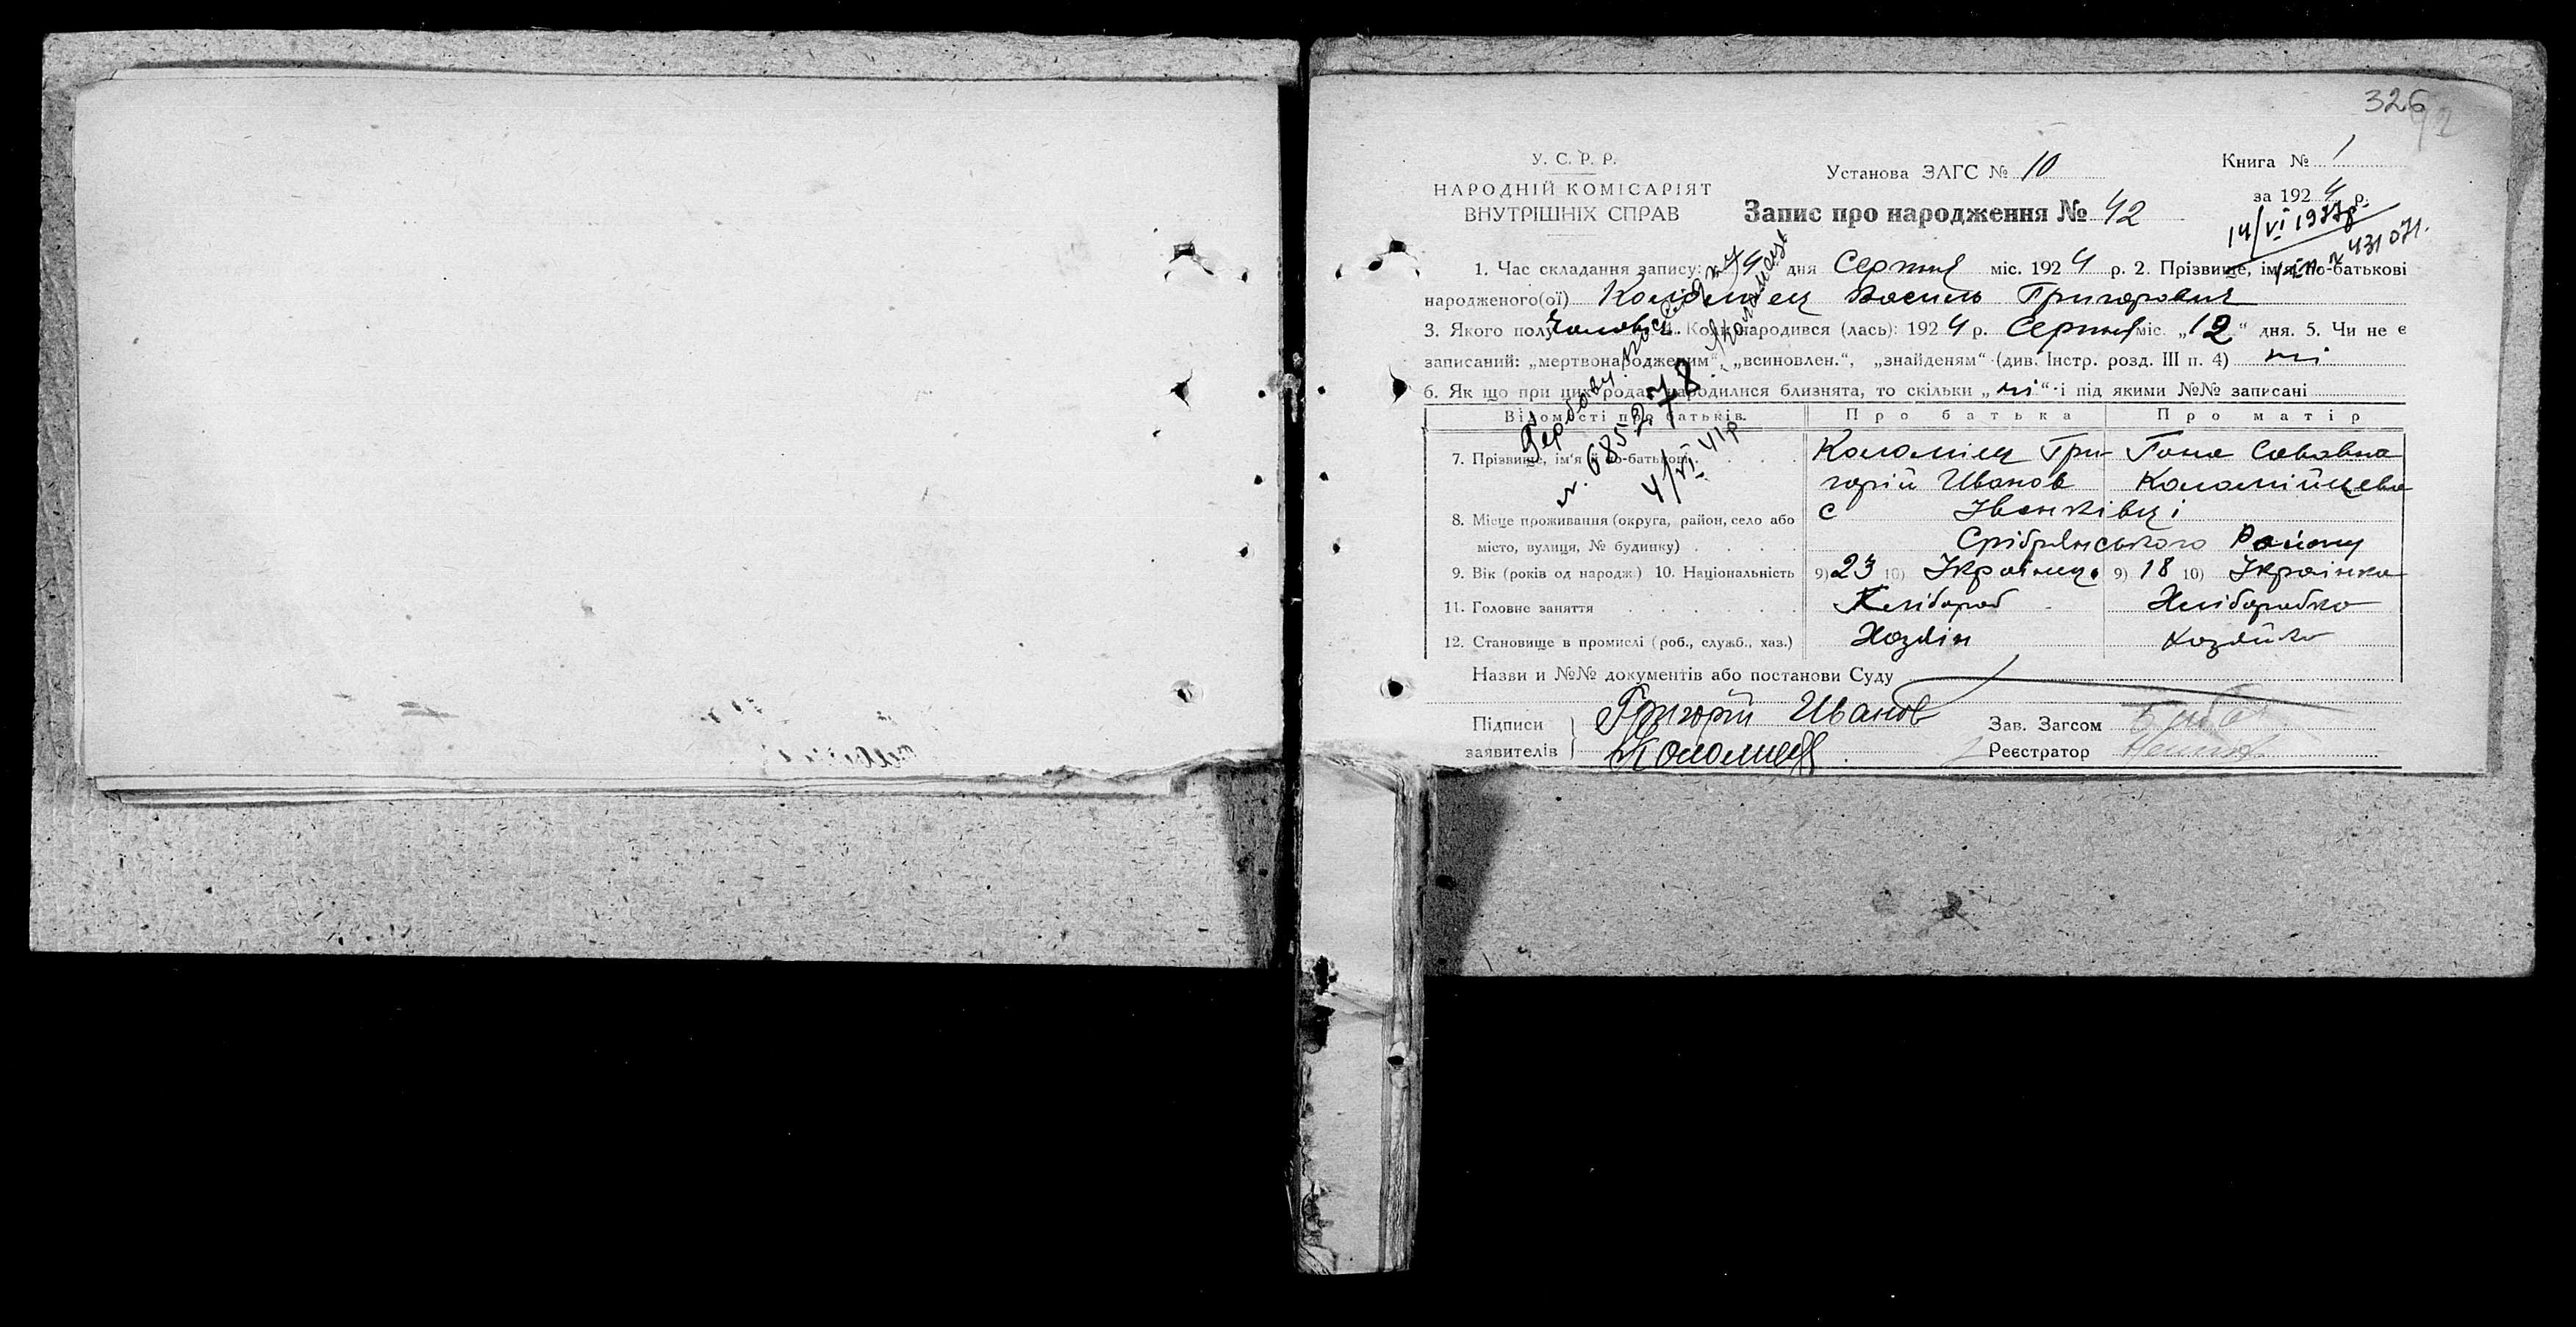 326
92
У. С. Р. Р.
НАРОДНІЙ КОМІСАРІЯТ
ВНУТРІШНІХ СПРАВ
Установа ЗАГС № 10
Запис про народження № 42
Книга № 1
за 1924 р.
14/VI 1977р.
431071.
1. Час складання запису: 14 дня Серпня міс. 1924 р. 2. Прізвище, ім'я й по-батькові
народженого(ої) Коломієц Василь Григорович
3. Якого полу 4. Коли народився (лась): 1924 р. Серпня міс. „12" дня. 5. Чи не є
записаний: „мертвонародженим", „всиновлен.", „знайденям" (див. Інстр. розд. III п. 4) ні
6. Як що при цих родах народилися близнята, то скільки „ні" і під якими №№ записані
Відомості про батьків. Про батька Про матір
7. Прізвище, ім'я й по-батькові Коломієц Гри- Савовна
горій Иванов Коломійцева
8. Місце проживання (округа, район, село або с Іванківці
місто, вулиця, № будинку) Срібрянського Району
9. Вік (років од народж.) 10. Національність 9) 23 10) Украінец 9) 18 10) Украінка
11. Головне заняття Хлібороб Хліборобка
12. Становище в промислі (роб., служб., хаз.) Хозяін Хозяйка
Назви и №№ документів або постанови Суду
Підписи заявителів Григорій Иванов
Коломиец
Зав. Загсом
Реєстратор
№ 685278
4/VI 41р